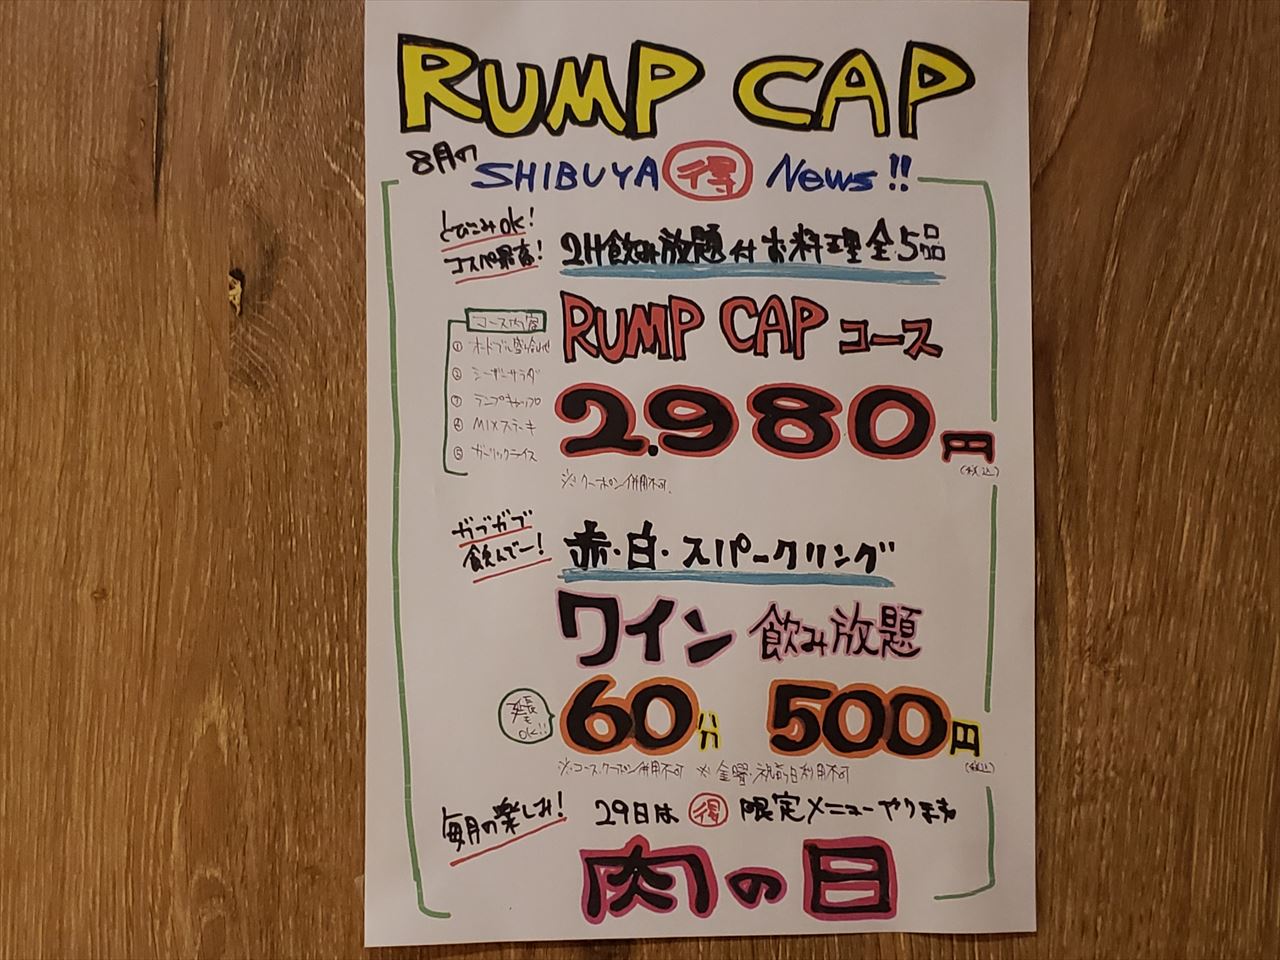 RUMP CAP
8月の
SHIBUYA 得 News!!
とびこみOK!
コスパ最高!
2H飲み放題付お料理全5品
コース内容
① オードブル盛り合わせ
② シーザーサラダ
③ ランプキャップ
④ MIXステーキ
⑤ ガーリックライス
RUMP CAP コース
2.980円
(税込)
※クーポン併用不可.
ガブガブ
飲んでー!
赤・白・スパークリング
ワイン 飲み放題
延長もOK!!
60分 500円
(税込)
※コース、クーポン併用不可 ※金曜・祝前日利用不可
毎月の楽しみ!
29日は 得 限定メニューやります
肉の日